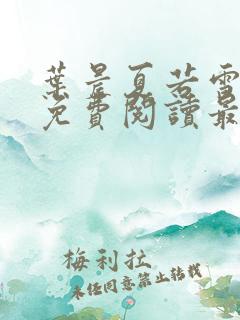 葉晨夏若雪
免費閱讀最
梅利拉
未经同意禁止转载